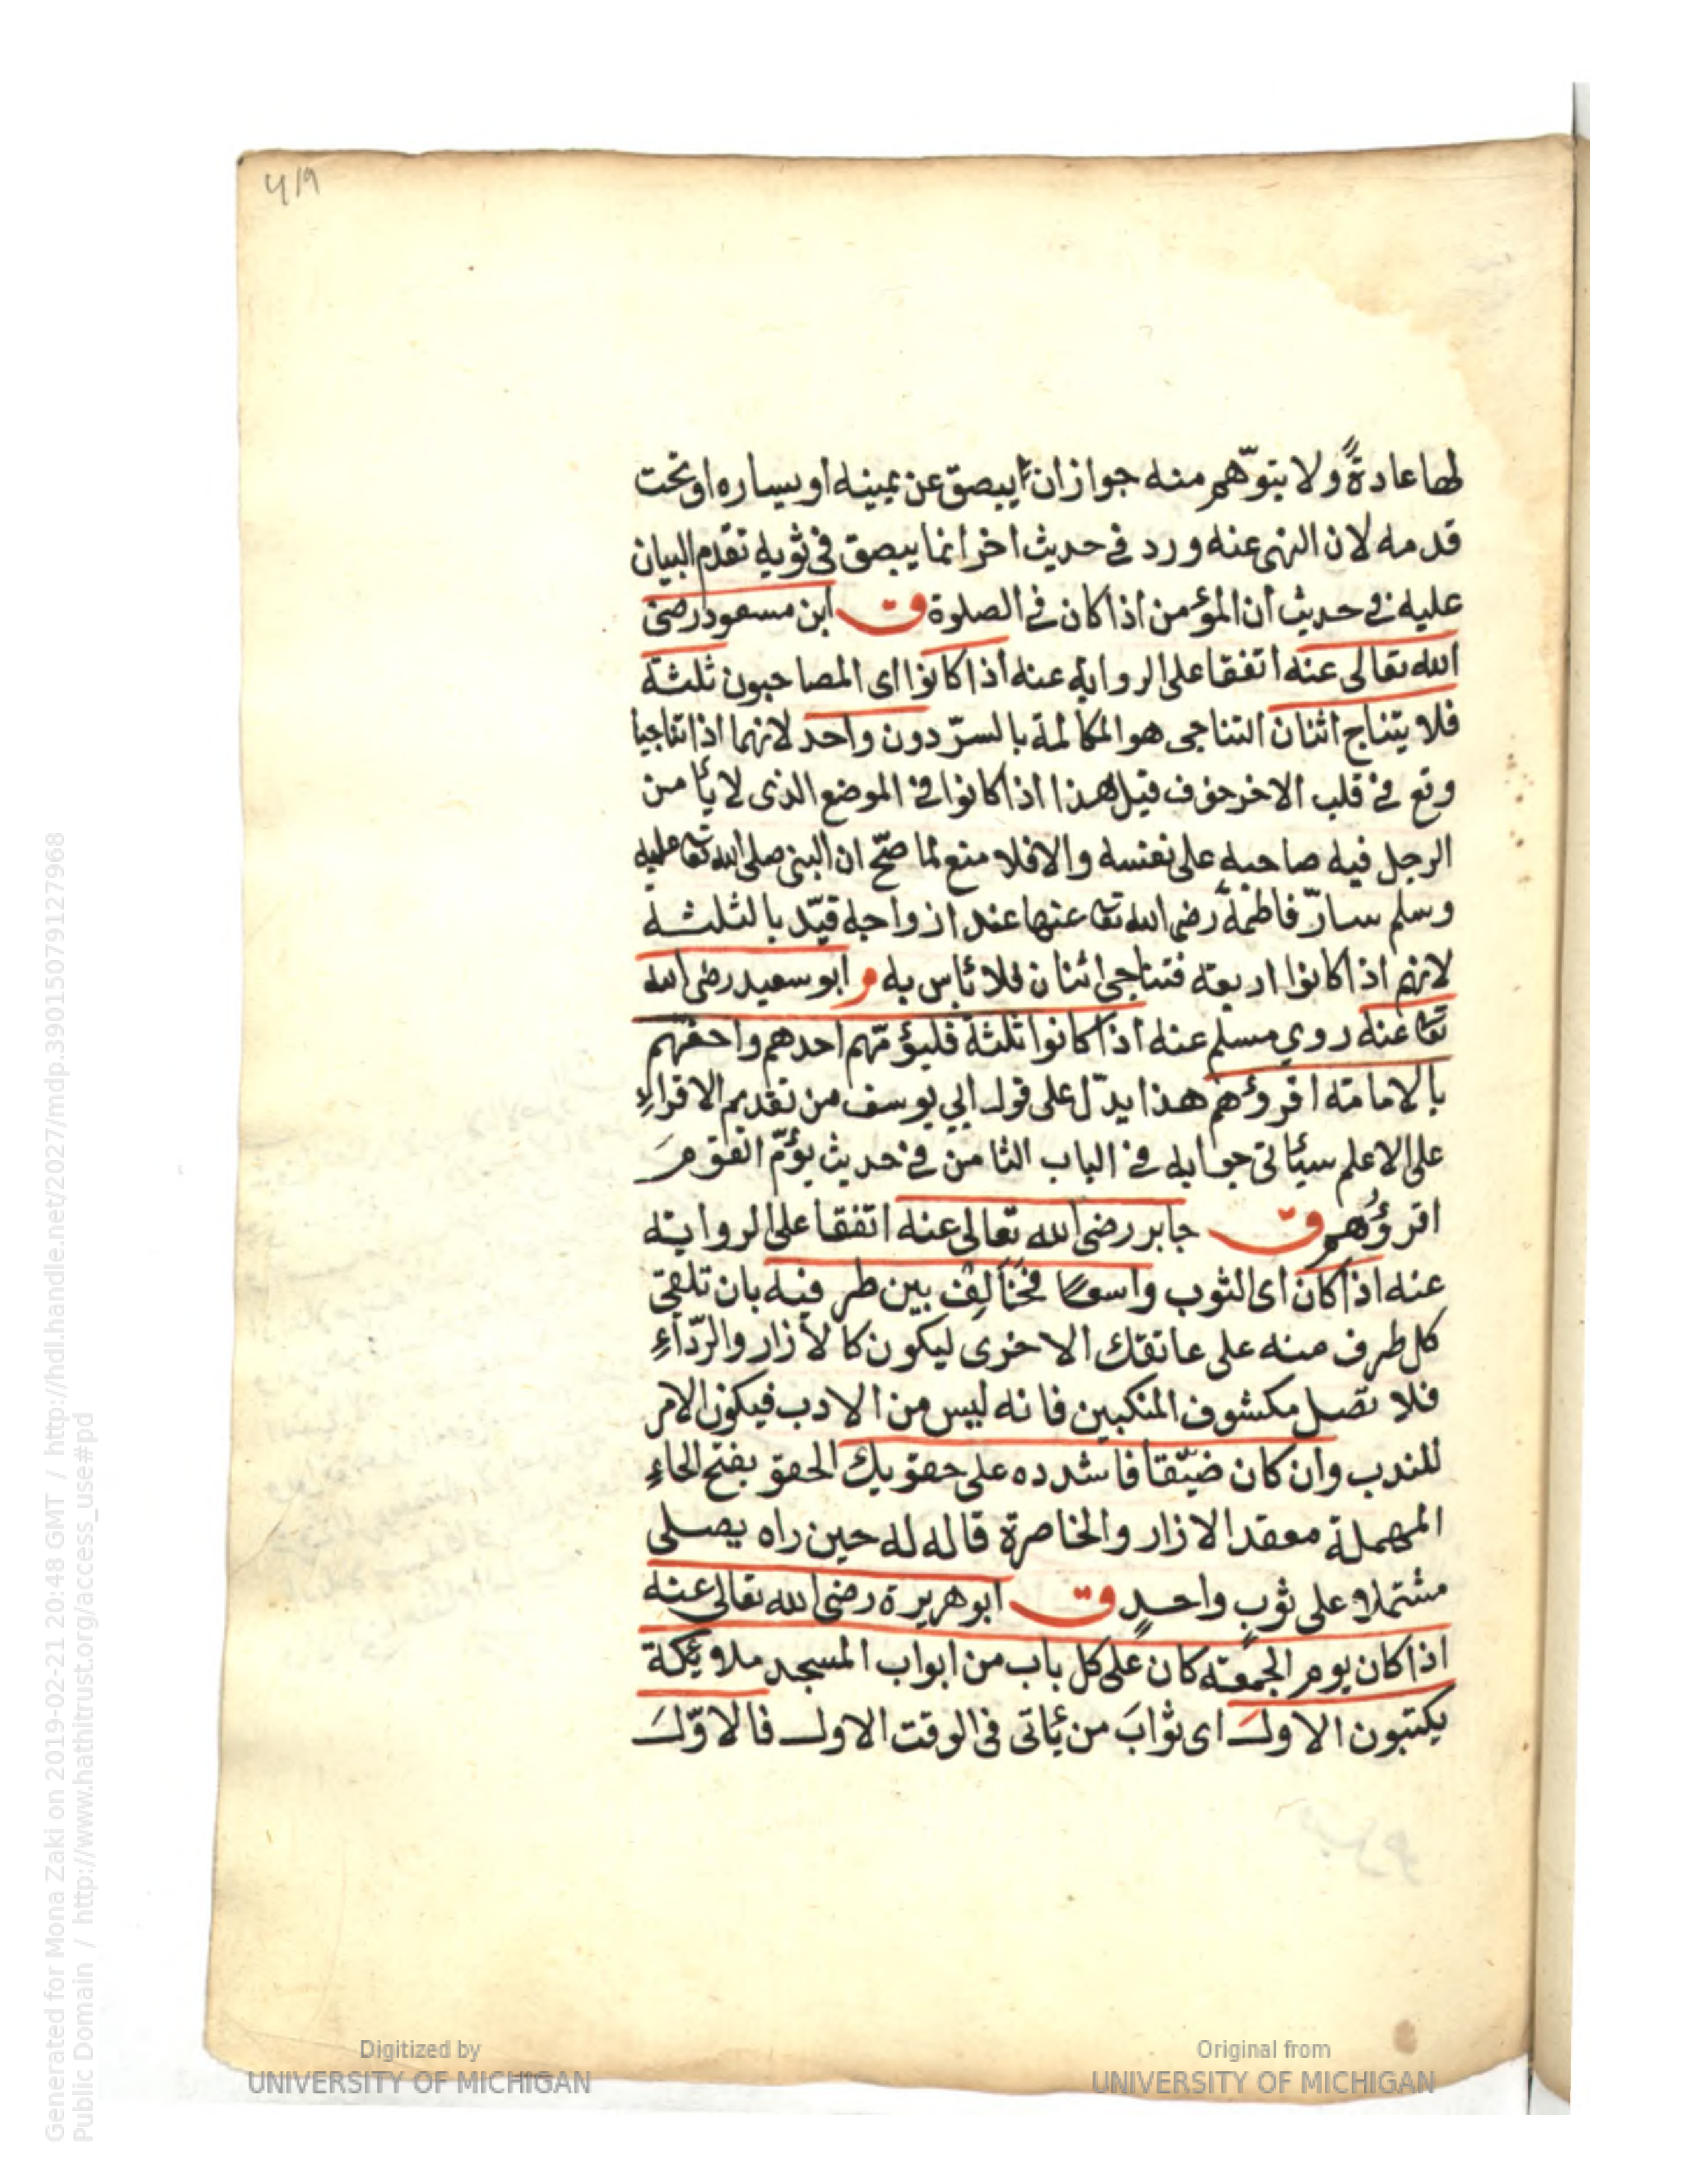 419
لها عادةً ولا يتوهّم منه جواز ان يبصق عن يمينه او يساره او تحت
قدمه لان النهى عنه ورد في حديث اخر انما يبصق فى ثوبه تقدم البيان
عليه في حديث ان المؤمن اذا كان في الصلوة ق ابن مسعود رضى
الله تعالى عنه اتفقا على الرواية عنه اذا كانوا اى المصاحبون ثلثة
فلا يتناج اثنان التناجى هو المكالمة بالسرّ دون واحد لانهما اذا تناجيا
وقع في قلب الاخر خوف قيل هذا اذا كانوا في الموضع الذى لا يأمن
الرجل فيه صاحبه على نفسه والا فلا منع لما صحّ ان النبى صلى الله تعا عليه
وسلم سارّ فاطمة رضى الله تعا عنها عند ازواجه قيّد بالثلثة
لانهم اذا كانوا اربعة فتناجى اثنان فلا بأس به م ابو سعيد رضى الله
تعا عنه روي مسلم عنه اذا كانوا ثلثة فليؤمّهم احدهم واحقهم
بالامامة اقرؤهم هذا يدّل على قول ابي يوسف من تقديم الاقراء
على الاعلم سيأتى جوابه في الباب الثامن في حديث يؤمّ القوم
اقرؤهم ق جابر رضى الله تعالى عنه اتفقا على الرواية
عنه اذا كان اى الثوب واسعا فخالِف بين طرفيه بان تلقى
كل طرف منه على عاتقك الاخرى ليكون كالأزار والرّداءِ
فلا تصل مكشوف المنكبين فانه ليس من الادب فيكون الامر
للندب وان كان ضيّقا فاشدده على حقويك الحقو بفتح الحاءِ
المهملة معقد الازار والخاصرة قاله له حين راه يصلى
مشتملا على ثوب واحدٍ ق ابو هريرة رضى الله تعالى عنه
اذا كان يوم الجمعة كان على كل باب من ابواب المسجد ملائكة
يكتبون الاول اى ثوابَ من يأتى فى الوقت الاول فالاوّلَ
Generated for Mona Zaki on 2019-02-21 20:48 GMT / http://hdl.handle.net/2027/mdp.39015079127968
Public Domain / http://www.hathitrust.org/access_use#pd
Digitized by
UNIVERSITY OF MICHIGAN
Original from
UNIVERSITY OF MICHIGAN